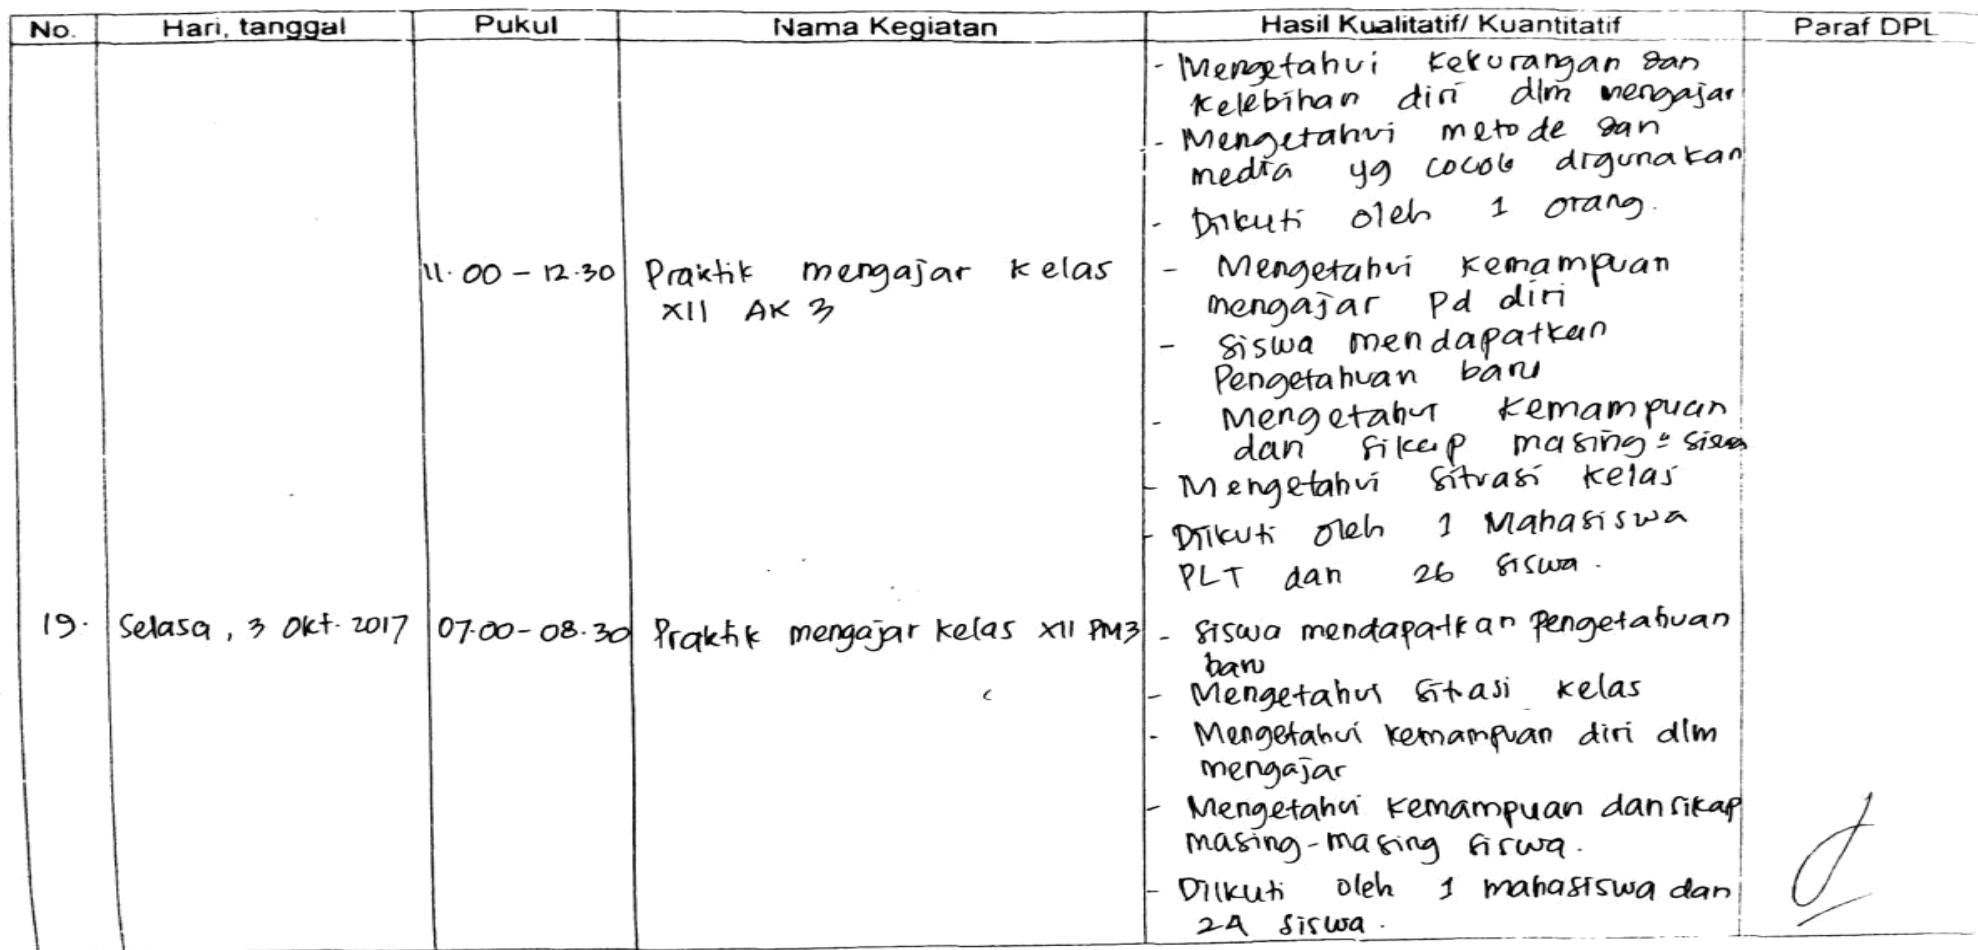 No. Hari, tanggal Pukul Nama Kegiatan Hasil Kualitatif/ Kuantitatif Paraf DPL
- Mengetahui kekurangan dan
kelebihan diri dlm mengajar
- Mengetahui metode dan
media yg cocok digunakan
- Diikuti oleh 1 orang.
11.00 - 12.30 Praktik mengajar kelas - Mengetahui kemampuan
XII AK 3 mengajar pd diri
- Siswa mendapatkan
Pengetahuan baru
- Mengetahui kemampuan
dan sikap masing" siswa
- Mengetahui situasi kelas
- Diikuti oleh 1 Mahasiswa
PLT dan 26 siswa.
19. Selasa, 3 Okt. 2017 07.00-08.30 Praktik mengajar kelas XII PM3 - siswa mendapatkan Pengetahuan
baru
- Mengetahui sitasi kelas
- Mengetahui kemampuan diri dlm
mengajar
- Mengetahui kemampuan dan sikap
masing-masing siswa.
- Diikuti oleh 1 mahasiswa dan
24 siswa.